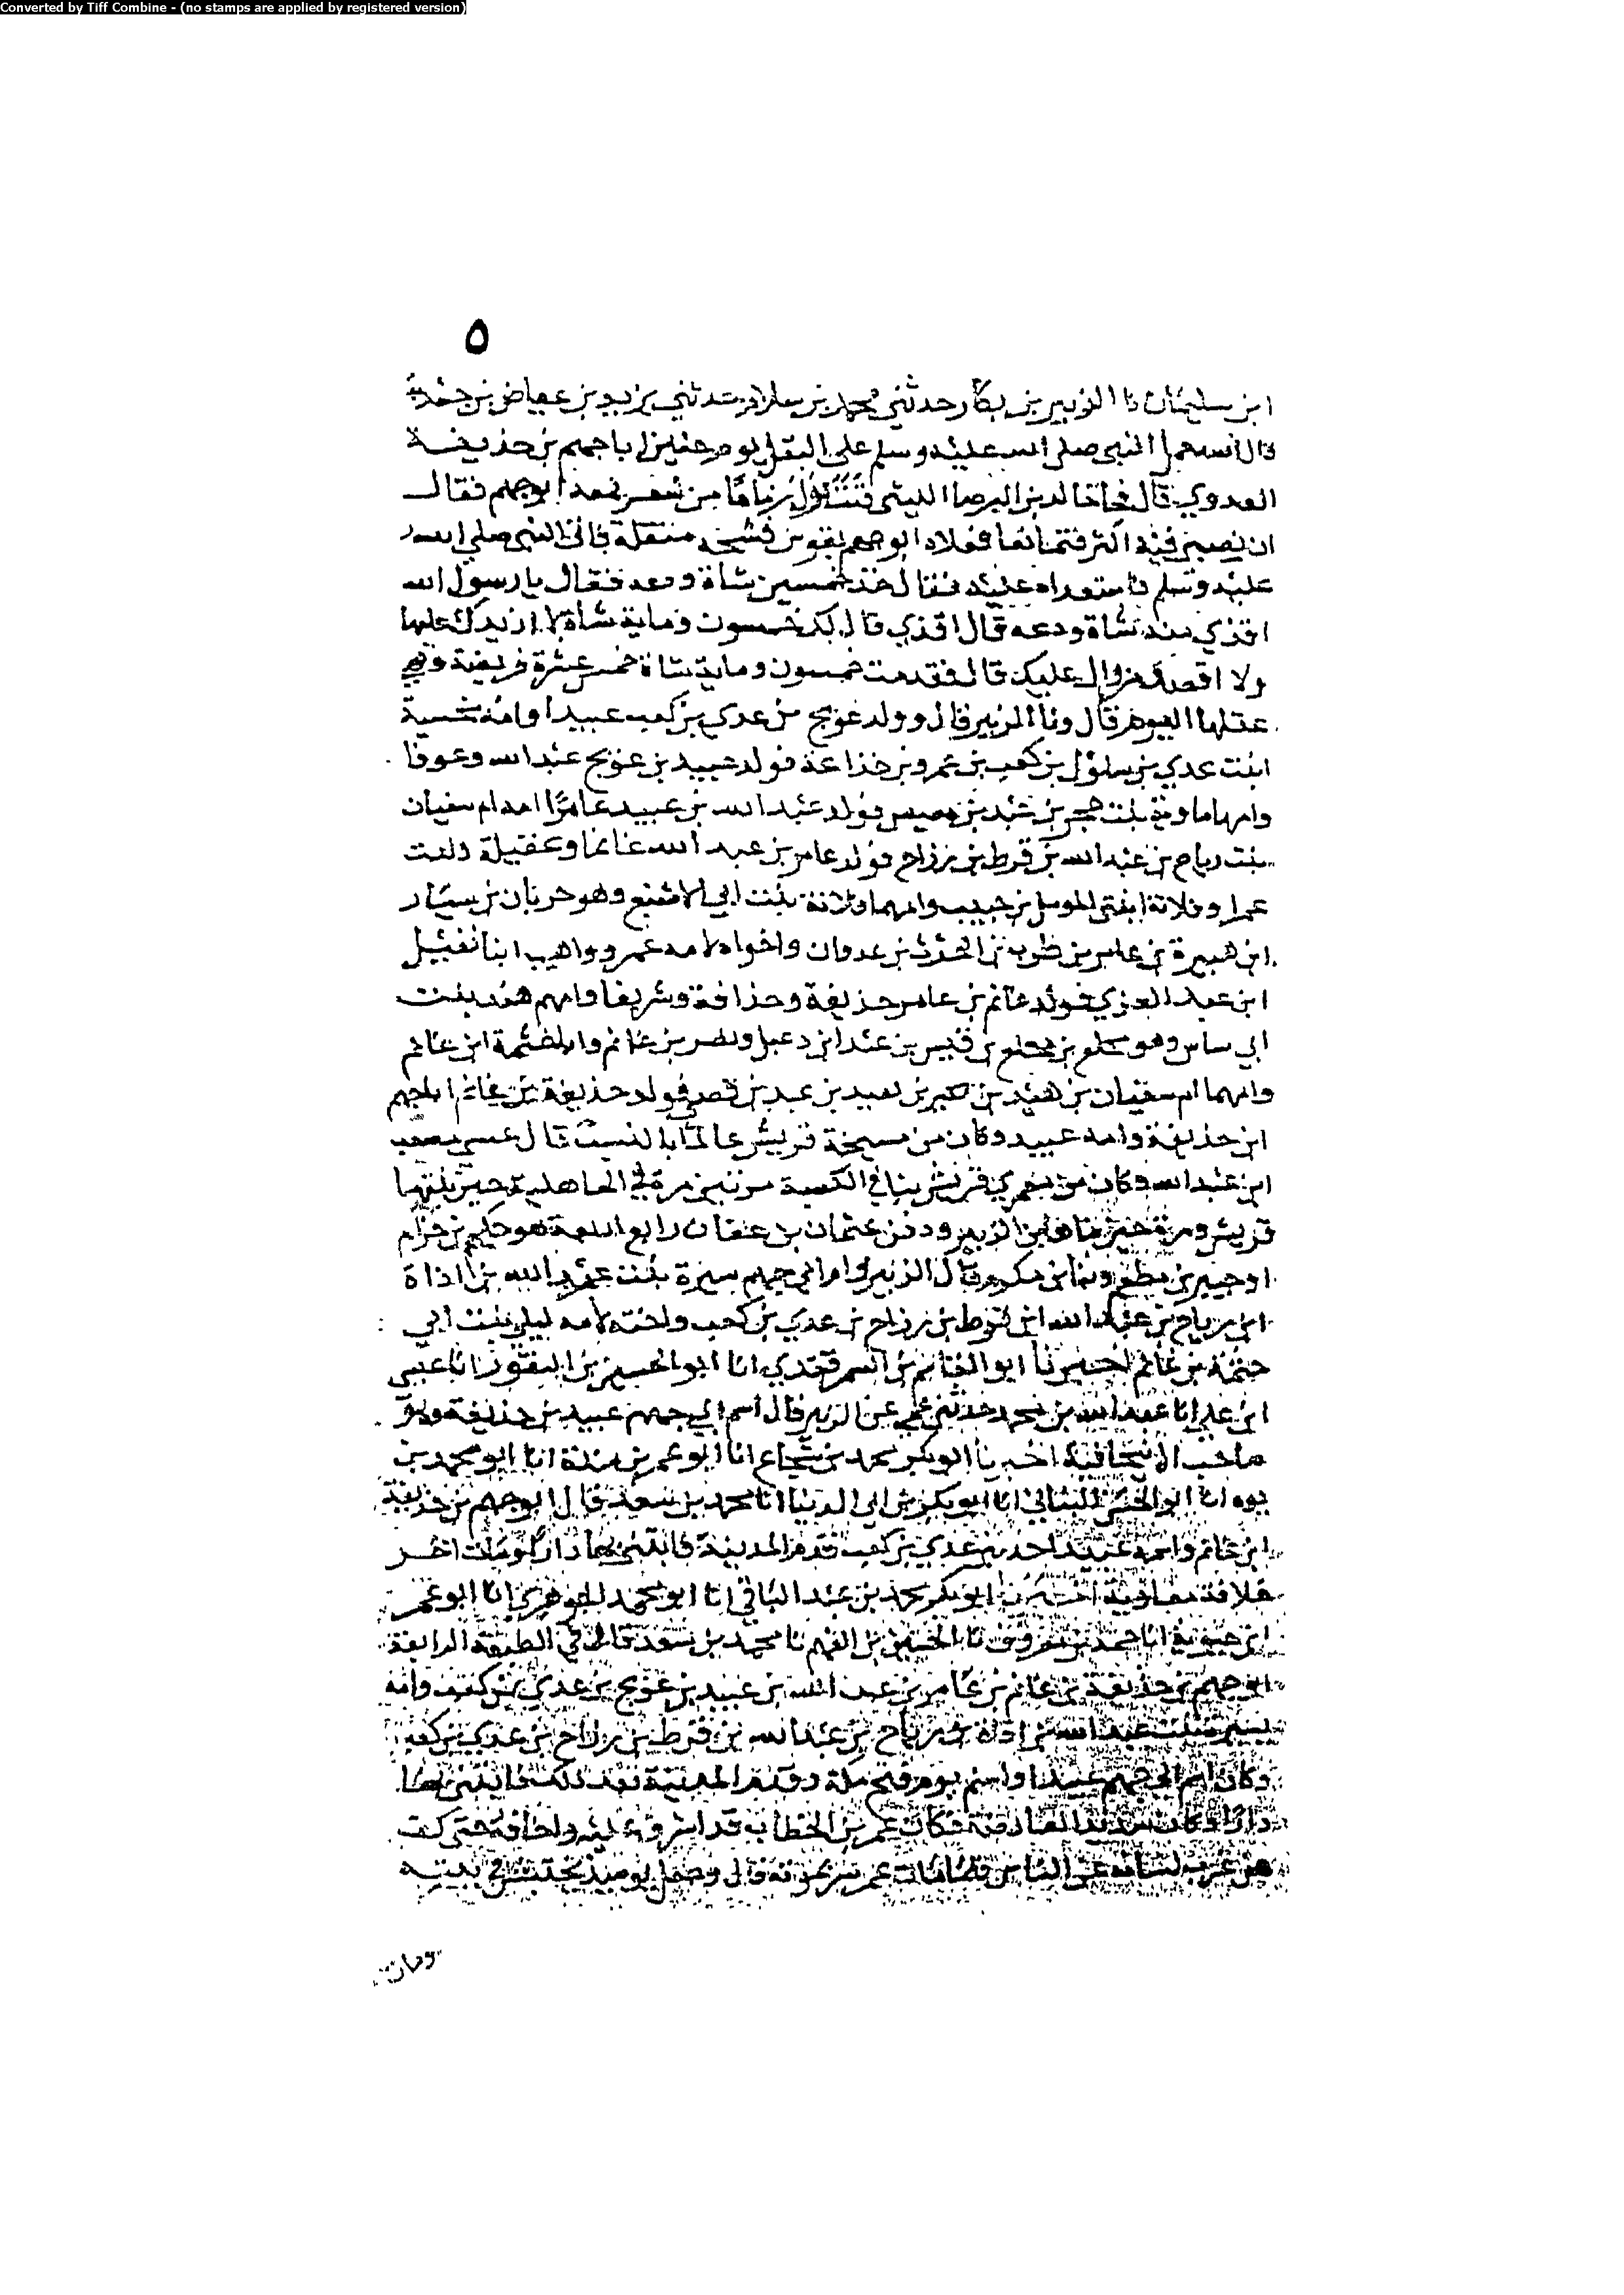 Converted by Tiff Combine - (no stamps are applied by registered version)
٥
ابن سليمان نا الزبير بن بكار حدثني محمد بن سلام حدثني يزيد بن عياض بن جعدبة
قال استعمل النبي صلى الله عليه وسلم على النفل يوم حنين ابا جهم بن حذيفة
العدوي قال فجا خالد بن البرصا الليثي فتناول زماما من شعر فمنعه ابو جهم فقال
ان نصيبي فيه اكثر فتمانعا فعلاه ابو جهم بقوس فشجه منقلة فاتى النبي صلى الله
عليه وسلم فاستعداه عليه فقال خذ خمسين شاة ودعه فقال يا رسول الله
اقدني منه شاة ودعه قال اقدني قال لك خمسون وماية شاة لا ازيدك عليها
ولا اقصك من وال عليك قال فقومت خمسون وماية شاة خمس عشرة فريضة فهي
عقلها اليوم قال ونا الزبير قال وولد عويج بن عدي بن كعب عبيدا وامه مخشية
ابنت عدي بن سلول بن كعب بن عمرو بن خزاعة فولد عبيد بن عويج عبد الله وعوفا
وامهما ماوية بنت حجر بن عبد بن معيص فولد عبد الله بن عبيد عامرا امه ام سفيان
بنت رياح بن عبد الله بن قرط بن رزاح فولد عامر بن عبد الله غانما وعقيلة ولدت
ابن هبيرة بن عامر بن ظرب بن الحرث بن عدوان واخواه لامه عمرو وواهب ابنا نفيل
ابن عبد العزي فولد غانم بن عامر حذيفة وحذافة وشريفا وامهم هند بنت
وامهما ام سفيان بن هنيد بن بجير بن عبد بن قصي فولد حذيفة بن غانم ابا جهم
ابن حذيفة وامه عبيد وكان من مسيخة قريش عالما بالنسب قال عمي مصعب
ابن عبد الله وكان من معمري قريش بنا في الكعبة مرتين مرة في الجاهلية حين بنتها
قريش ومرة حين بناها ابن الزبير ودفن عثمان بن عفان رابع اربعة هو حكيم بن حزام
او جبير بن مطعم ونيار بن مكرم وقال الزبير وام ابي جهم يسيرة بنت عبد الله بن اذاة
ابن رياح بن عبد الله ابن قرط بن رزاح بن عدي بن كعب واخته لامه ليلى بنت ابي
حثمة بن غانم اخبرنا ابو القاسم بن السمرقندي انا ابو الحسين بن النقور انا عيسى
ابن علي انا عبد الله بن محمد حدثني عمي عن الزبير قال اسم ابي جهم عبيد بن حذيفة وهو
صاحب الانبجانية اخبرنا ابو بكر محمد بن شجاع انا ابو عمرو بن مندة انا ابو محمد بن
يوه انا ابو الحسن اللنباني انا ابو بكر بن ابي الدنيا انا محمد بن سعد قال ابو جهم بن حذيفة
ابن غانم واسمه عبيد احد بني عدي بن كعب قدم المدينة فابتنى بها دارا ومات اخر
خلافة معاوية اخبرنا ابو بكر محمد بن عبد الباقي انا ابو محمد الجوهري انا ابو عمر
ابن حيويه انا احمد بن معروف نا الحسين بن الفهم نا محمد بن سعد قال في الطبقة الرابعة
ابو جهم بن حذيفة بن غانم بن عامر بن عبد الله بن عبيد بن عويج بن عدي بن كعب وامه
يسيرة بنت عبد الله بن اذاة بن رياح بن عبد الله بن قرط بن رزاح بن عدي بن كعب
وكان اسم ابي جهم عبيدا واسلم يوم فتح مكة وقدم المدينة بعد ذلك فابتنى بها
دارا وكان شديد العارضة فكان عمر بن الخطاب قد اشرف عليه واخافه حتى كف
من غرب لسانه عن الناس فلما مات عمر سر بموته قال وجعل يوميذ يحتبش في بيته